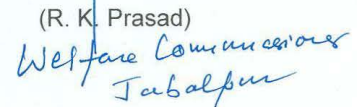 (R. K. Prasad)
Welfare Commissioner
Jabalpur